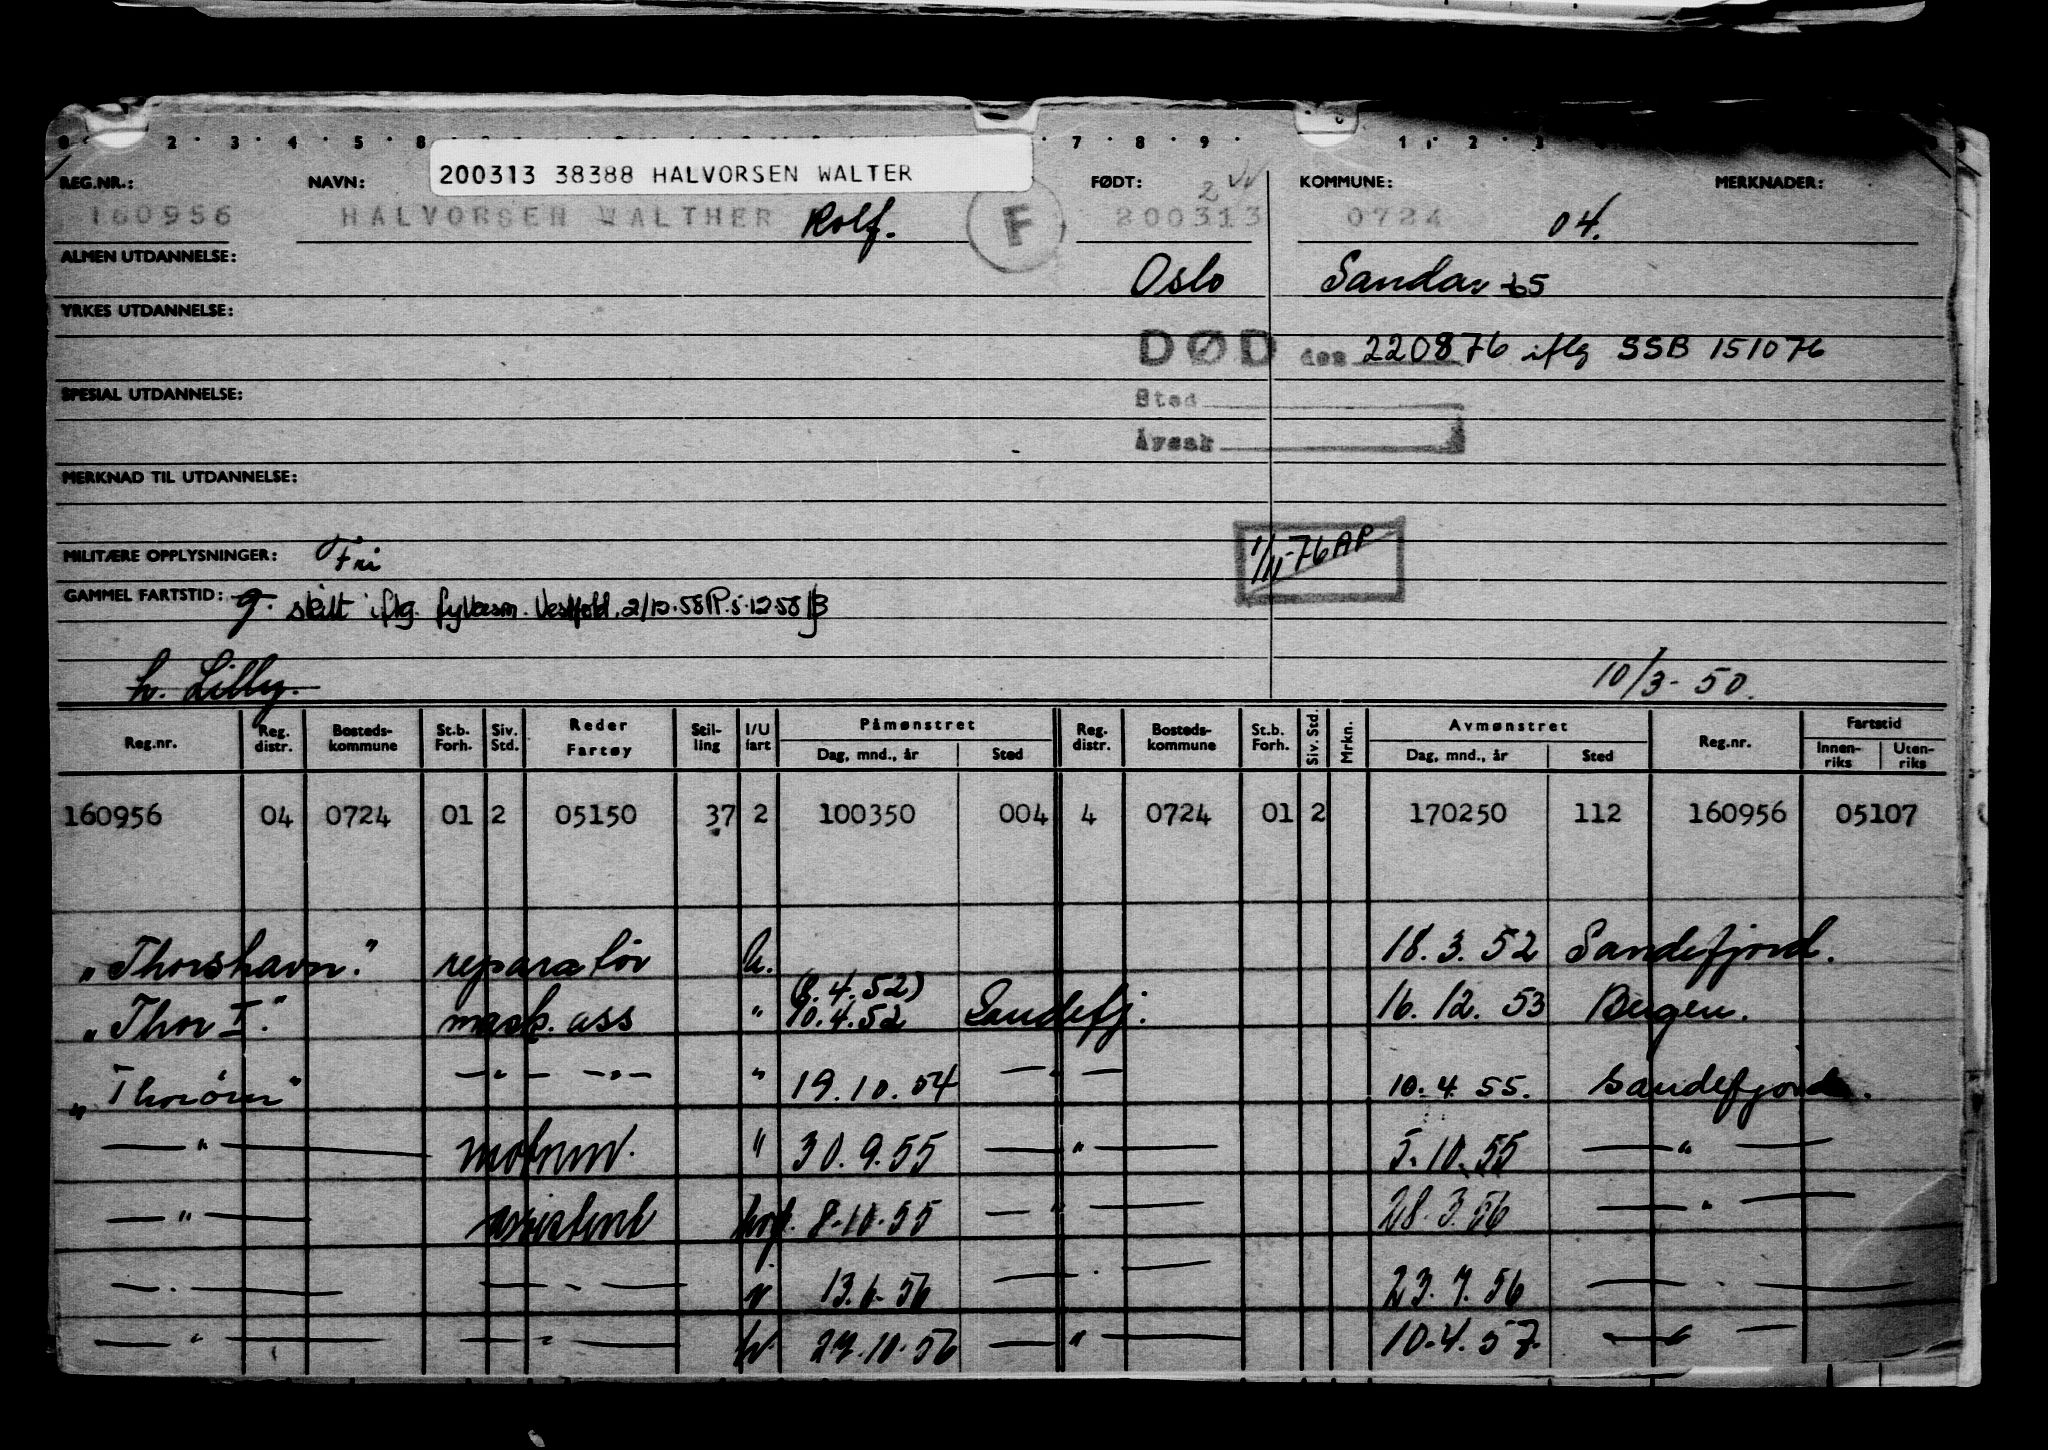 200313 38388 HALVORSEN WALTER
REG.NR.: NAVN: FØDT: KOMMUNE: MERKNADER:
160956 HALVORSEN WALTHER Rolf. F 200313 0724 04.
ALMEN UTDANNELSE: Oslo Sandar
YRKES UTDANNELSE:
DØD den 220876 iflg SSB 151076
SPESIAL UTDANNELSE: Sted
Årsak
MERKNAD TIL UTDANNELSE:
MILITÆRE OPPLYSNINGER: Fri 1/11-76 AP
GAMMEL FARTSTID: g. skilt iflg. Vestfold. 2/10.58
h. Lilly. 10/3-50.
Reg.nr. Reg. distr. Bosteds-kommune St.b. Forh. Siv. Std. Reder Fartøy Stil-ling I/U fart Påmønstret Dag, mnd., år Sted Reg. distr. Bosteds-kommune St.b. Forh. Siv. Std. Mrkn. Avmønstret Dag, mnd., år Sted Reg.nr. Fartstid Innen-riks Uten-riks
160956 04 0724 01 2 05150 37 2 100350 004 4 0724 01 2 170250 112 160956 05107
"Thorshavn." reparatør h. 18.3.52 Sandefjord.
(8.4.52)
"Thor I." mask. ass " 10.4.52 Sandefj. 16.12.53 Bergen.
"Thorörn" —"— —"— " 19.10.54 —"— 10.4.55. Sandefjord.
—"— motorm. " 30.9.55 —"— 5.10.55 —"—
—"— assistent hvf. 8.10.55 —"— 28.3.56 —"—
—"— —"— 13.6.56 —"— 23.7.56 —"—
—"— —"— hv. 10.56 —"— 10.4.57. —"—